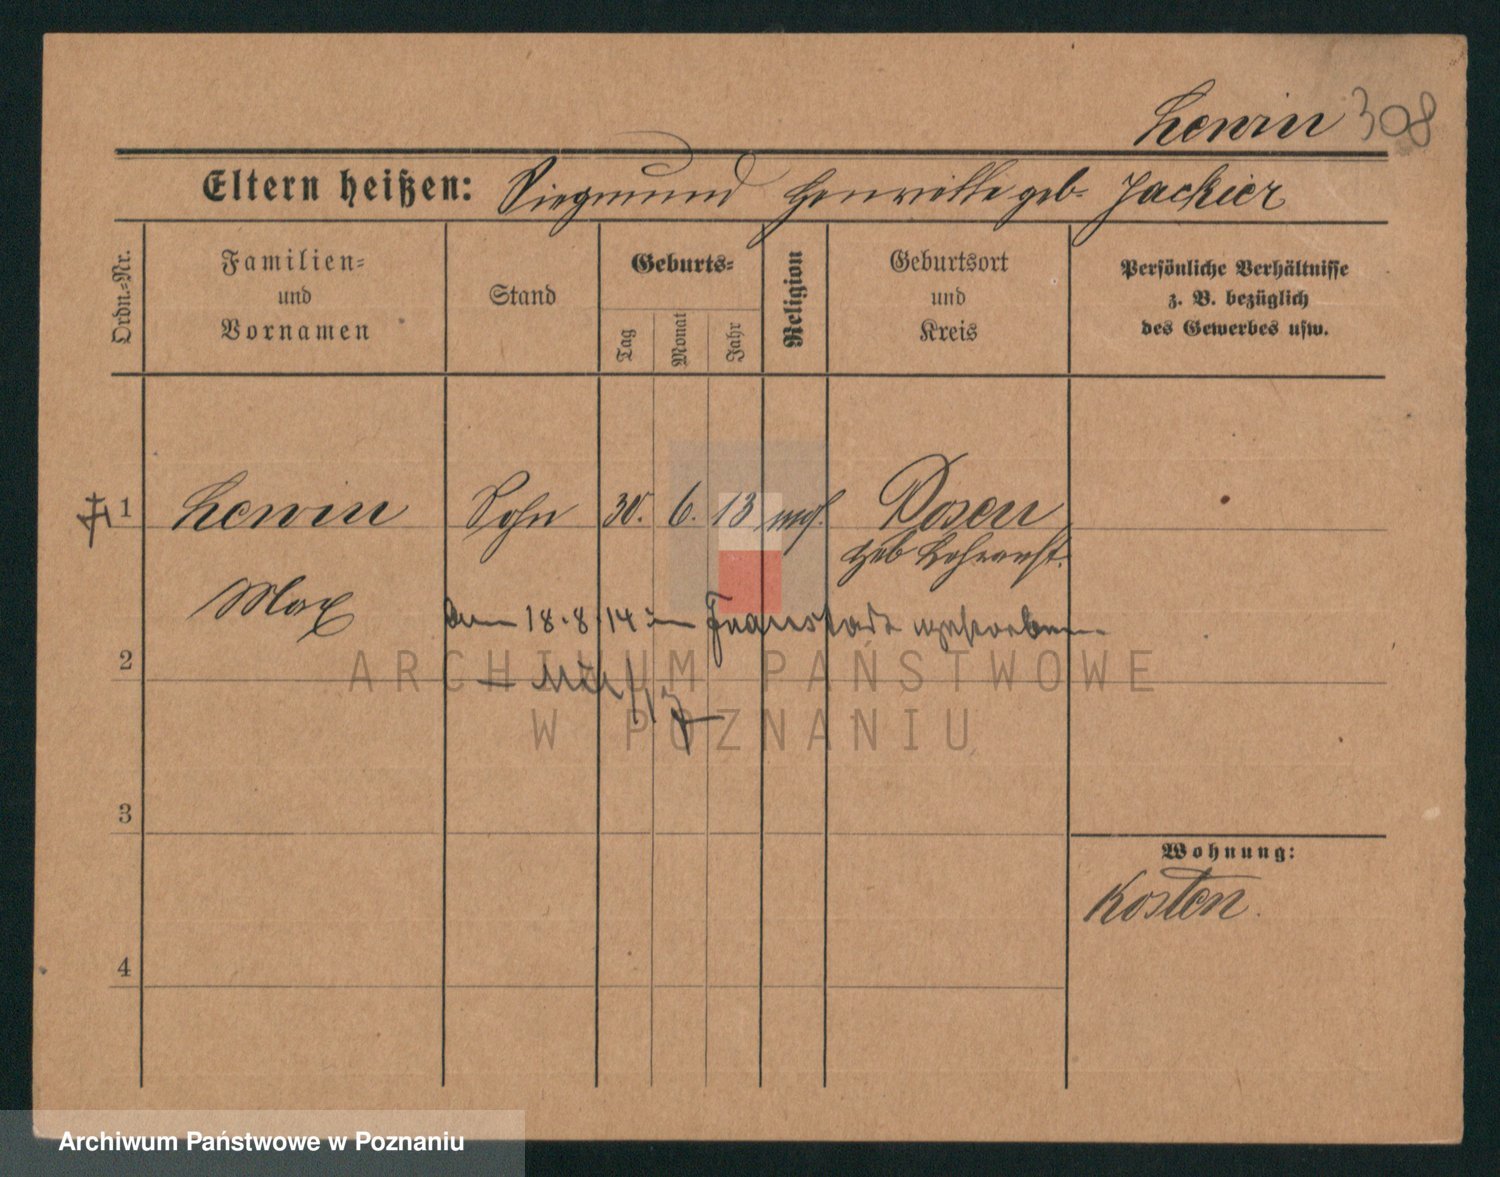 Lewin 308
Eltern heißen: Siegmund Henriette geb. Jackier
Ordn.-Nr.
Familien- und Vornamen
Stand
Geburts-
Tag
Monat
Jahr
Religion
Geburtsort und Kreis
Persönliche Verhältnisse
z. B. bezüglich
des Gewerbes usw.
1 Lewin Sohn 30. 6. 13 mos. Posen
Heb Lehranst.
Max
Am 18.8.14 in Fraustadt verstorben
2
3
Wohnung:
Kosten.
4
ARCHIWUM PAŃSTWOWE
W POZNANIU
Archiwum Państwowe w Poznaniu